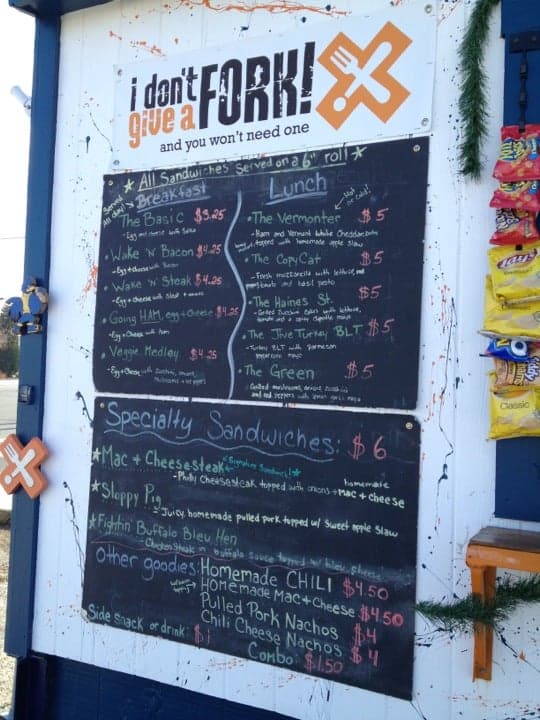 i don't
give a
FORK!
and you won't need one
All Sandwiches Served on a 6" roll
Served All day!
Breakfast
The Basic $3.25
- Egg and cheese with Salsa
Wake 'N' Bacon $4.25
- Egg + cheese with Bacon
Wake 'N' Steak $4.25
- Egg + cheese with Steak + onions
Going HAM, egg + Cheese $4.25
- Egg + Cheese with Ham
Veggie Medley $4.25
- Egg + Cheese with Zucchini, onions, mushrooms + peppers
Lunch
Hot or Cold!
The Vermonter $5
- Ham and Vermont White Cheddar
topped with homemade apple slaw
The CopyCat $5
- Fresh mozzarella with lettuce, red
tomato and basil pesto
The Haines St. $5
- Grilled Zucchini cakes with lettuce,
tomato and a spicy chipotle mayo
The Jive Turkey BLT $5
- Turkey BLT with parmesan
peppercorn mayo
The Green $5
- Grilled mushrooms, onions, zucchini
and red peppers with mayo
Specialty Sandwiches: $6
Mac + Cheese-steak
Signature Sandwich!
- Philly Cheesesteak topped with onions + homemade mac + cheese
Sloppy Pig
- Juicy homemade pulled pork topped w/ sweet apple slaw
Fightin Buffalo Bleu Hen
- Chicken Steak in buffalo sauce topped w/ bleu cheese
Other goodies:
Homemade CHILI $4.50
Homemade Mac + Cheese $4.50
Pulled Pork Nachos $4
Chili Cheese Nachos $4
Side snack or drink: $1
Combo: $1.50
Lay's
Classic